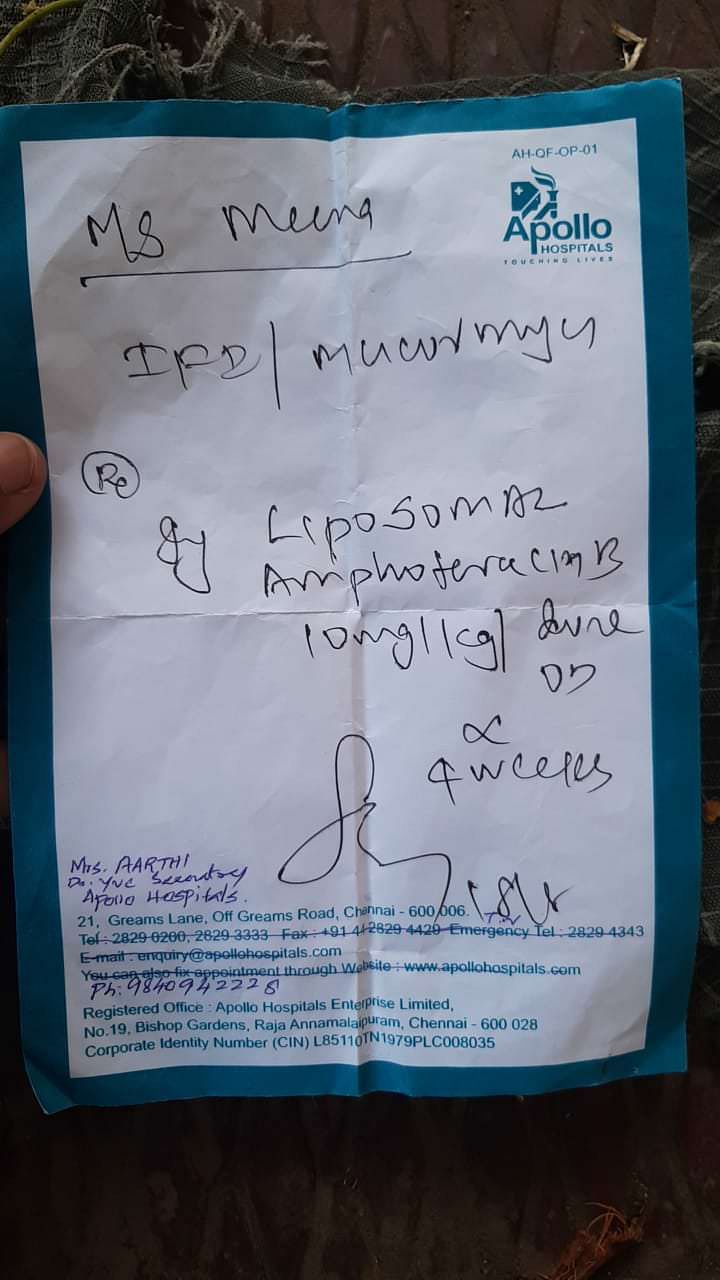 AH-QF-OP-01
Apollo
HOSPITALS
TOUCHING LIVES
Ms Meena
IFD/ mucormyco
Re
Inj Liposomal
Amphoteracin B
10mg/kg/
OD
x
4 weeks
Mrs. AARTHI
Dr. YVC Secretary
Apollo Hospitals.
21, Greams Lane, Off Greams Road, Chennai - 600 006.
Tel : 2829 0200, 2829 3333 Fax : +91 44 2829 4429 Emergency Tel : 2829 4343
E-mail : enquiry@apollohospitals.com
You can also fix appointment through Website : www.apollohospitals.com
Ph: 9840942228
Registered Office : Apollo Hospitals Enterprise Limited,
No.19, Bishop Gardens, Raja Annamalaipuram, Chennai - 600 028
Corporate Identity Number (CIN) L85110TN1979PLC008035